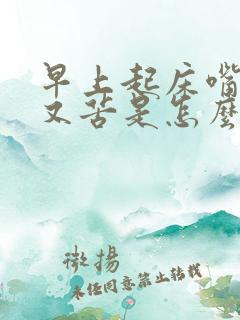 早上起床嘴
又苦是怎麼
徵揚
未经同意禁止转载